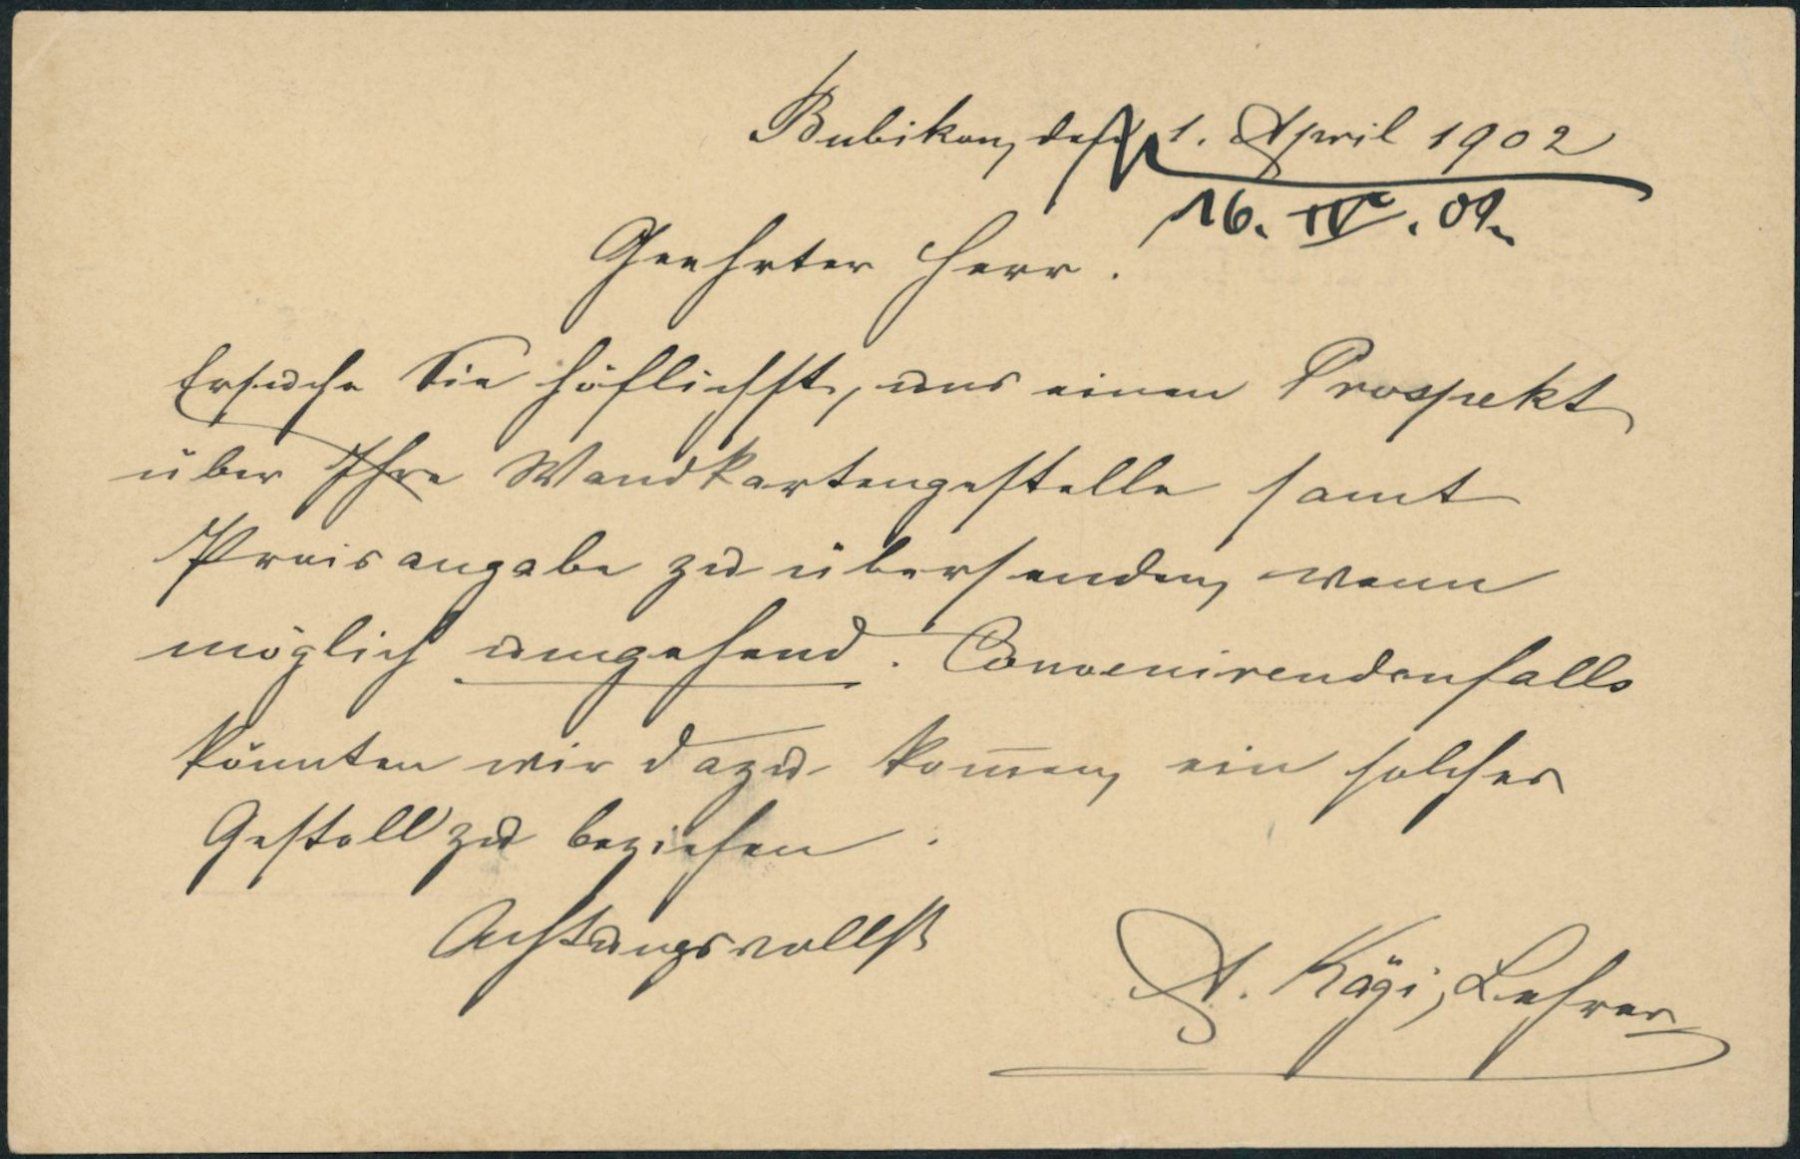 Bubikon, den 1. April 1902
16. IV. 02.
Geehrter Herr!
Ersuche Sie höflichst, uns einen Prospekt
über Ihre Wandkartengestelle samt
Preisangabe zu übersenden, wenn
möglich umgehend. Convenirendenfalls
könnten wir dazu kom̅en, ein solches
Gestell zu beziehen.
Achtungsvollst
A. Kägi, Lehrer